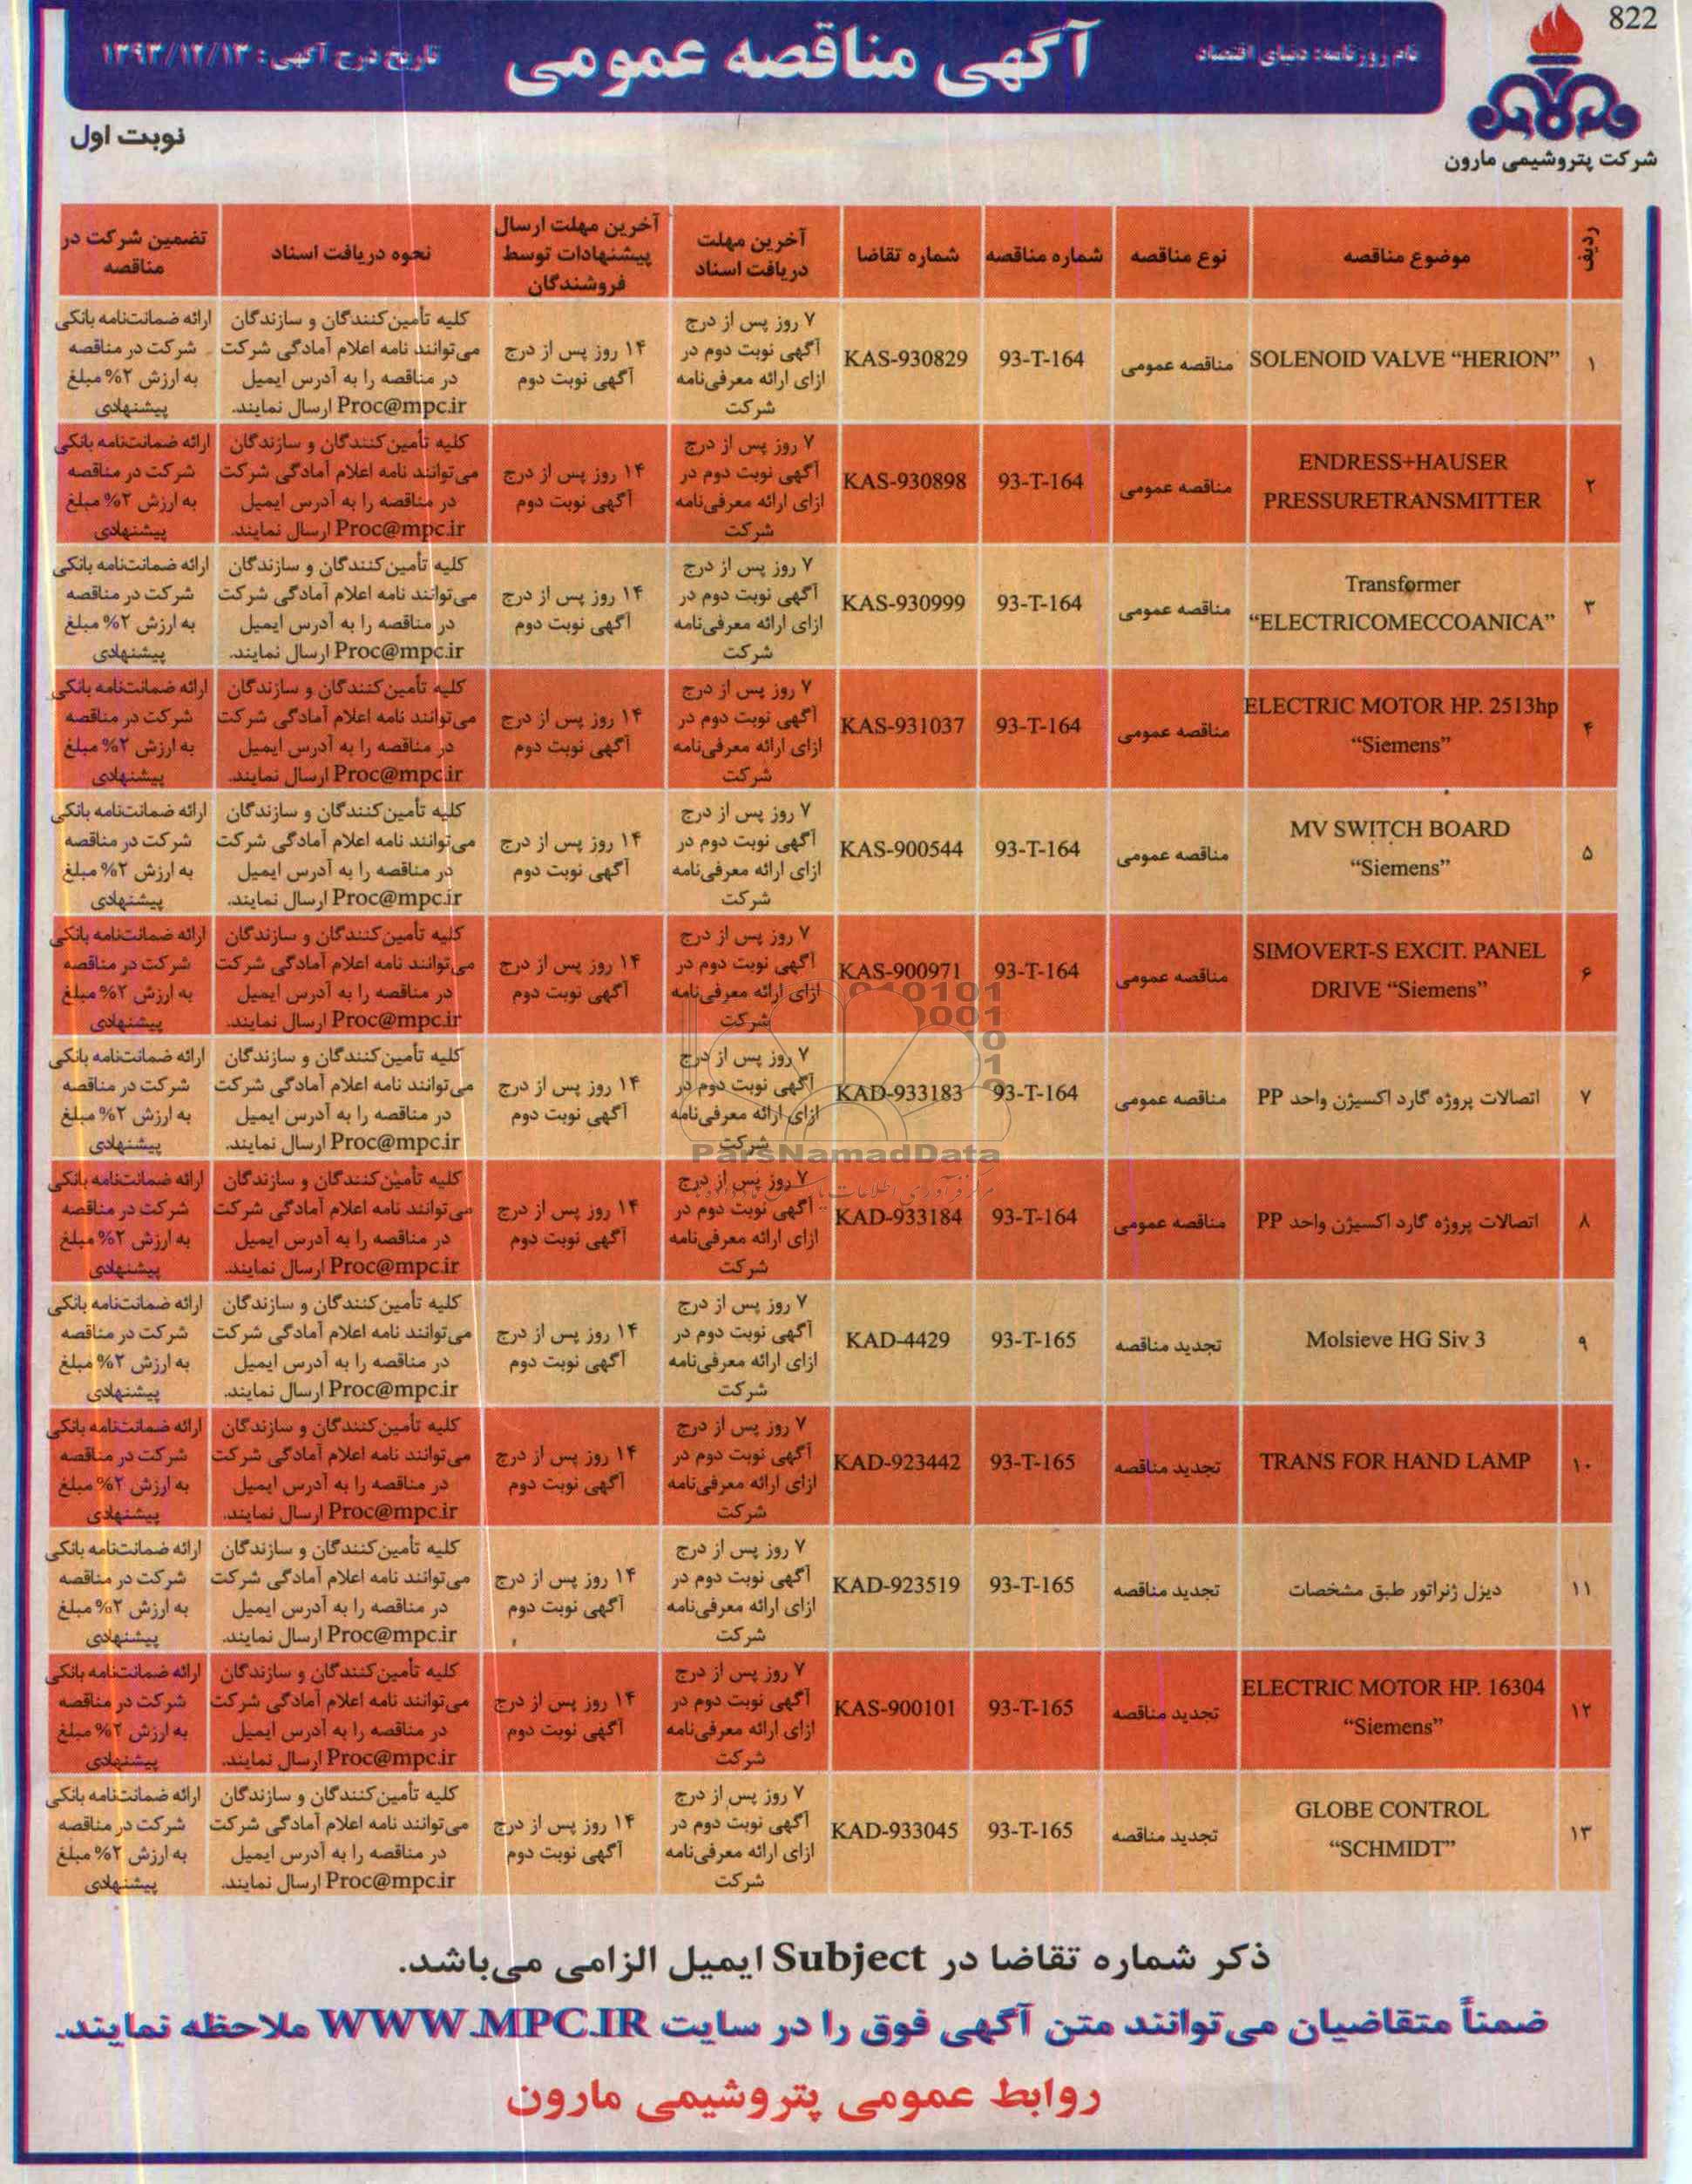 822
نام روزنامه: دنیای اقتصاد
آگهی مناقصه عمومی
تاریخ درج آگهی: ۱۳۹۳/۱۲/۱۳
شرکت پتروشیمی مارون
نوبت اول
ردیف
موضوع مناقصه
نوع مناقصه
شماره مناقصه
شماره تقاضا
آخرین مهلت
دریافت اسناد
آخرین مهلت ارسال
پیشنهادات توسط
فروشندگان
نحوه دریافت اسناد
تضمین شرکت در
مناقصه
۱
SOLENOID VALVE “HERION”
مناقصه عمومی
93-T-164
KAS-930829
۷ روز پس از درج
آگهی نوبت دوم در
ازای ارائه معرفی‌نامه
شرکت
۱۴ روز پس از درج
آگهی نوبت دوم
کلیه تأمین‌کنندگان و سازندگان
می‌توانند نامه اعلام آمادگی شرکت
در مناقصه را به آدرس ایمیل
Proc@mpc.ir ارسال نمایند.
ارائه ضمانت‌نامه بانکی
شرکت در مناقصه
به ارزش ۲% مبلغ
پیشنهادی
۲
ENDRESS+HAUSER
PRESSURETRANSMITTER
مناقصه عمومی
93-T-164
KAS-930898
۷ روز پس از درج
آگهی نوبت دوم در
ازای ارائه معرفی‌نامه
شرکت
۱۴ روز پس از درج
آگهی نوبت دوم
کلیه تأمین‌کنندگان و سازندگان
می‌توانند نامه اعلام آمادگی شرکت
در مناقصه را به آدرس ایمیل
Proc@mpc.ir ارسال نمایند.
ارائه ضمانت‌نامه بانکی
شرکت در مناقصه
به ارزش ۲% مبلغ
پیشنهادی
۳
Transformer
“ELECTRICOMECCOANICA”
مناقصه عمومی
93-T-164
KAS-930999
۷ روز پس از درج
آگهی نوبت دوم در
ازای ارائه معرفی‌نامه
شرکت
۱۴ روز پس از درج
آگهی نوبت دوم
کلیه تأمین‌کنندگان و سازندگان
می‌توانند نامه اعلام آمادگی شرکت
در مناقصه را به آدرس ایمیل
Proc@mpc.ir ارسال نمایند.
ارائه ضمانت‌نامه بانکی
شرکت در مناقصه
به ارزش ۲% مبلغ
پیشنهادی
۴
ELECTRIC MOTOR HP. 2513hp
“Siemens”
مناقصه عمومی
93-T-164
KAS-931037
۷ روز پس از درج
آگهی نوبت دوم در
ازای ارائه معرفی‌نامه
شرکت
۱۴ روز پس از درج
آگهی نوبت دوم
کلیه تأمین‌کنندگان و سازندگان
می‌توانند نامه اعلام آمادگی شرکت
در مناقصه را به آدرس ایمیل
Proc@mpc.ir ارسال نمایند.
ارائه ضمانت‌نامه بانکی
شرکت در مناقصه
به ارزش ۲% مبلغ
پیشنهادی
۵
MV SWITCH BOARD
“Siemens”
مناقصه عمومی
93-T-164
KAS-900544
۷ روز پس از درج
آگهی نوبت دوم در
ازای ارائه معرفی‌نامه
شرکت
۱۴ روز پس از درج
آگهی نوبت دوم
کلیه تأمین‌کنندگان و سازندگان
می‌توانند نامه اعلام آمادگی شرکت
در مناقصه را به آدرس ایمیل
Proc@mpc.ir ارسال نمایند.
ارائه ضمانت‌نامه بانکی
شرکت در مناقصه
به ارزش ۲% مبلغ
پیشنهادی
۶
SIMOVERT-S EXCIT. PANEL
DRIVE “Siemens”
مناقصه عمومی
93-T-164
KAS-900971
۷ روز پس از درج
آگهی نوبت دوم در
ازای ارائه معرفی‌نامه
شرکت
۱۴ روز پس از درج
آگهی نوبت دوم
کلیه تأمین‌کنندگان و سازندگان
می‌توانند نامه اعلام آمادگی شرکت
در مناقصه را به آدرس ایمیل
Proc@mpc.ir ارسال نمایند.
ارائه ضمانت‌نامه بانکی
شرکت در مناقصه
به ارزش ۲% مبلغ
پیشنهادی
۷
اتصالات پروژه گارد اکسیژن واحد PP
مناقصه عمومی
93-T-164
KAD-933183
۷ روز پس از درج
آگهی نوبت دوم در
ازای ارائه معرفی‌نامه
شرکت
۱۴ روز پس از درج
آگهی نوبت دوم
کلیه تأمین‌کنندگان و سازندگان
می‌توانند نامه اعلام آمادگی شرکت
در مناقصه را به آدرس ایمیل
Proc@mpc.ir ارسال نمایند.
ارائه ضمانت‌نامه بانکی
شرکت در مناقصه
به ارزش ۲% مبلغ
پیشنهادی
ParsNamadData
۸
اتصالات پروژه گارد اکسیژن واحد PP
مناقصه عمومی
93-T-164
KAD-933184
۷ روز پس از درج
آگهی نوبت دوم در
ازای ارائه معرفی‌نامه
شرکت
۱۴ روز پس از درج
آگهی نوبت دوم
کلیه تأمین‌کنندگان و سازندگان
می‌توانند نامه اعلام آمادگی شرکت
در مناقصه را به آدرس ایمیل
Proc@mpc.ir ارسال نمایند.
ارائه ضمانت‌نامه بانکی
شرکت در مناقصه
به ارزش ۲% مبلغ
پیشنهادی
۹
Molsieve HG Siv 3
تجدید مناقصه
93-T-165
KAD-4429
۷ روز پس از درج
آگهی نوبت دوم در
ازای ارائه معرفی‌نامه
شرکت
۱۴ روز پس از درج
آگهی نوبت دوم
کلیه تأمین‌کنندگان و سازندگان
می‌توانند نامه اعلام آمادگی شرکت
در مناقصه را به آدرس ایمیل
Proc@mpc.ir ارسال نمایند.
ارائه ضمانت‌نامه بانکی
شرکت در مناقصه
به ارزش ۲% مبلغ
پیشنهادی
۱۰
TRANS FOR HAND LAMP
تجدید مناقصه
93-T-165
KAD-923442
۷ روز پس از درج
آگهی نوبت دوم در
ازای ارائه معرفی‌نامه
شرکت
۱۴ روز پس از درج
آگهی نوبت دوم
کلیه تأمین‌کنندگان و سازندگان
می‌توانند نامه اعلام آمادگی شرکت
در مناقصه را به آدرس ایمیل
Proc@mpc.ir ارسال نمایند.
ارائه ضمانت‌نامه بانکی
شرکت در مناقصه
به ارزش ۲% مبلغ
پیشنهادی
۱۱
دیزل ژنراتور طبق مشخصات
تجدید مناقصه
93-T-165
KAD-923519
۷ روز پس از درج
آگهی نوبت دوم در
ازای ارائه معرفی‌نامه
شرکت
۱۴ روز پس از درج
آگهی نوبت دوم
کلیه تأمین‌کنندگان و سازندگان
می‌توانند نامه اعلام آمادگی شرکت
در مناقصه را به آدرس ایمیل
Proc@mpc.ir ارسال نمایند.
ارائه ضمانت‌نامه بانکی
شرکت در مناقصه
به ارزش ۲% مبلغ
پیشنهادی
۱۲
ELECTRIC MOTOR HP. 16304
“Siemens”
تجدید مناقصه
93-T-165
KAS-900101
۷ روز پس از درج
آگهی نوبت دوم در
ازای ارائه معرفی‌نامه
شرکت
۱۴ روز پس از درج
آگهی نوبت دوم
کلیه تأمین‌کنندگان و سازندگان
می‌توانند نامه اعلام آمادگی شرکت
در مناقصه را به آدرس ایمیل
Proc@mpc.ir ارسال نمایند.
ارائه ضمانت‌نامه بانکی
شرکت در مناقصه
به ارزش ۲% مبلغ
پیشنهادی
۱۳
GLOBE CONTROL
“SCHMIDT”
تجدید مناقصه
93-T-165
KAD-933045
۷ روز پس از درج
آگهی نوبت دوم در
ازای ارائه معرفی‌نامه
شرکت
۱۴ روز پس از درج
آگهی نوبت دوم
کلیه تأمین‌کنندگان و سازندگان
می‌توانند نامه اعلام آمادگی شرکت
در مناقصه را به آدرس ایمیل
Proc@mpc.ir ارسال نمایند.
ارائه ضمانت‌نامه بانکی
شرکت در مناقصه
به ارزش ۲% مبلغ
پیشنهادی
ذکر شماره تقاضا در Subject ایمیل الزامی می‌باشد.
ضمناً متقاضیان می‌توانند متن آگهی فوق را در سایت WWW.MPC.IR ملاحظه نمایند.
روابط عمومی پتروشیمی مارون